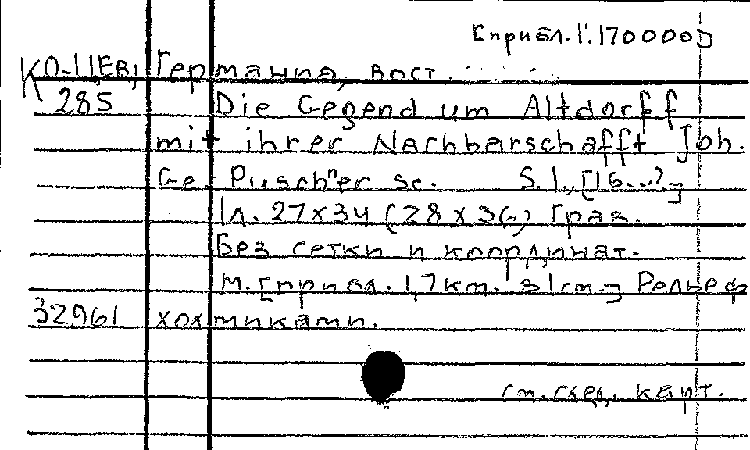 [прибл. 1:170000]
К О-ЦЕВ, Германия, вост.
285 Die Gegend um Altdorff
mit ihrer Nachbarschafft Joh.
Ge. Puschner sc. S.l., [16...?]
1 л. 27х34 (28х36) Грав.
Без сетки и координат.
М. [прибл. 1,7 km. в 1 cm.] Рельеф
32961 холмиками.
см. след. карт.